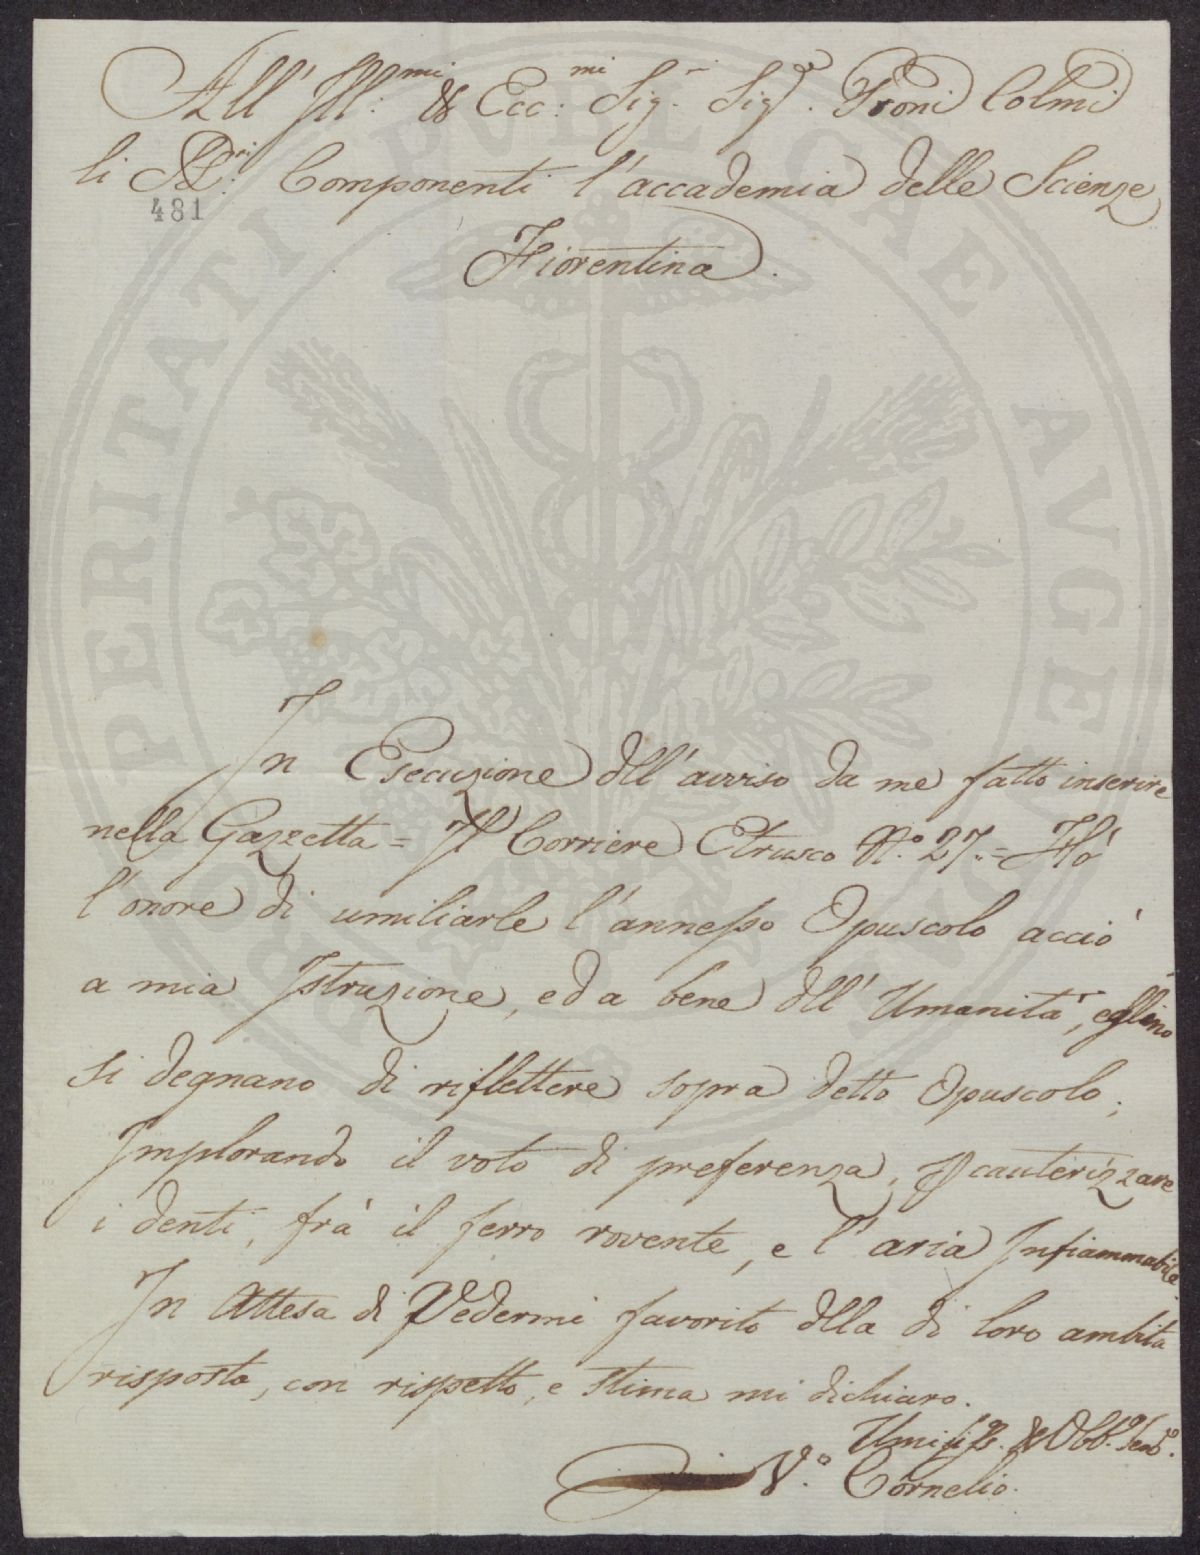 All' Ill:mi & Ecc:mi Sig.ri Sig.ri Proni Colmi
li S.ri Componenti l'accademia delle Scienze
481
Fiorentina.
In Esecuzione dll' avviso da me fatto inserire
nella Gazzetta = Il Corriere Etrusco N.o 27. = Hó
l'onore di umiliarle l'annesso Opuscolo acciò
a mia Istruzione, ed a bene dll' Umanità, eglino
si degnano di riflettere sopra detto Opuscolo;
Implorando il voto di preferenza, p cauterizzare
i denti, frà il ferro rovente, e l'aria Infiammabile.
In Attesa di Vedermi favorito dlla di loro ambita
risposta, con rispetto, e stima mi dichiaro.
& Obb.o
V.o Cornelio.
PERITATI PUBLICAE AUGE